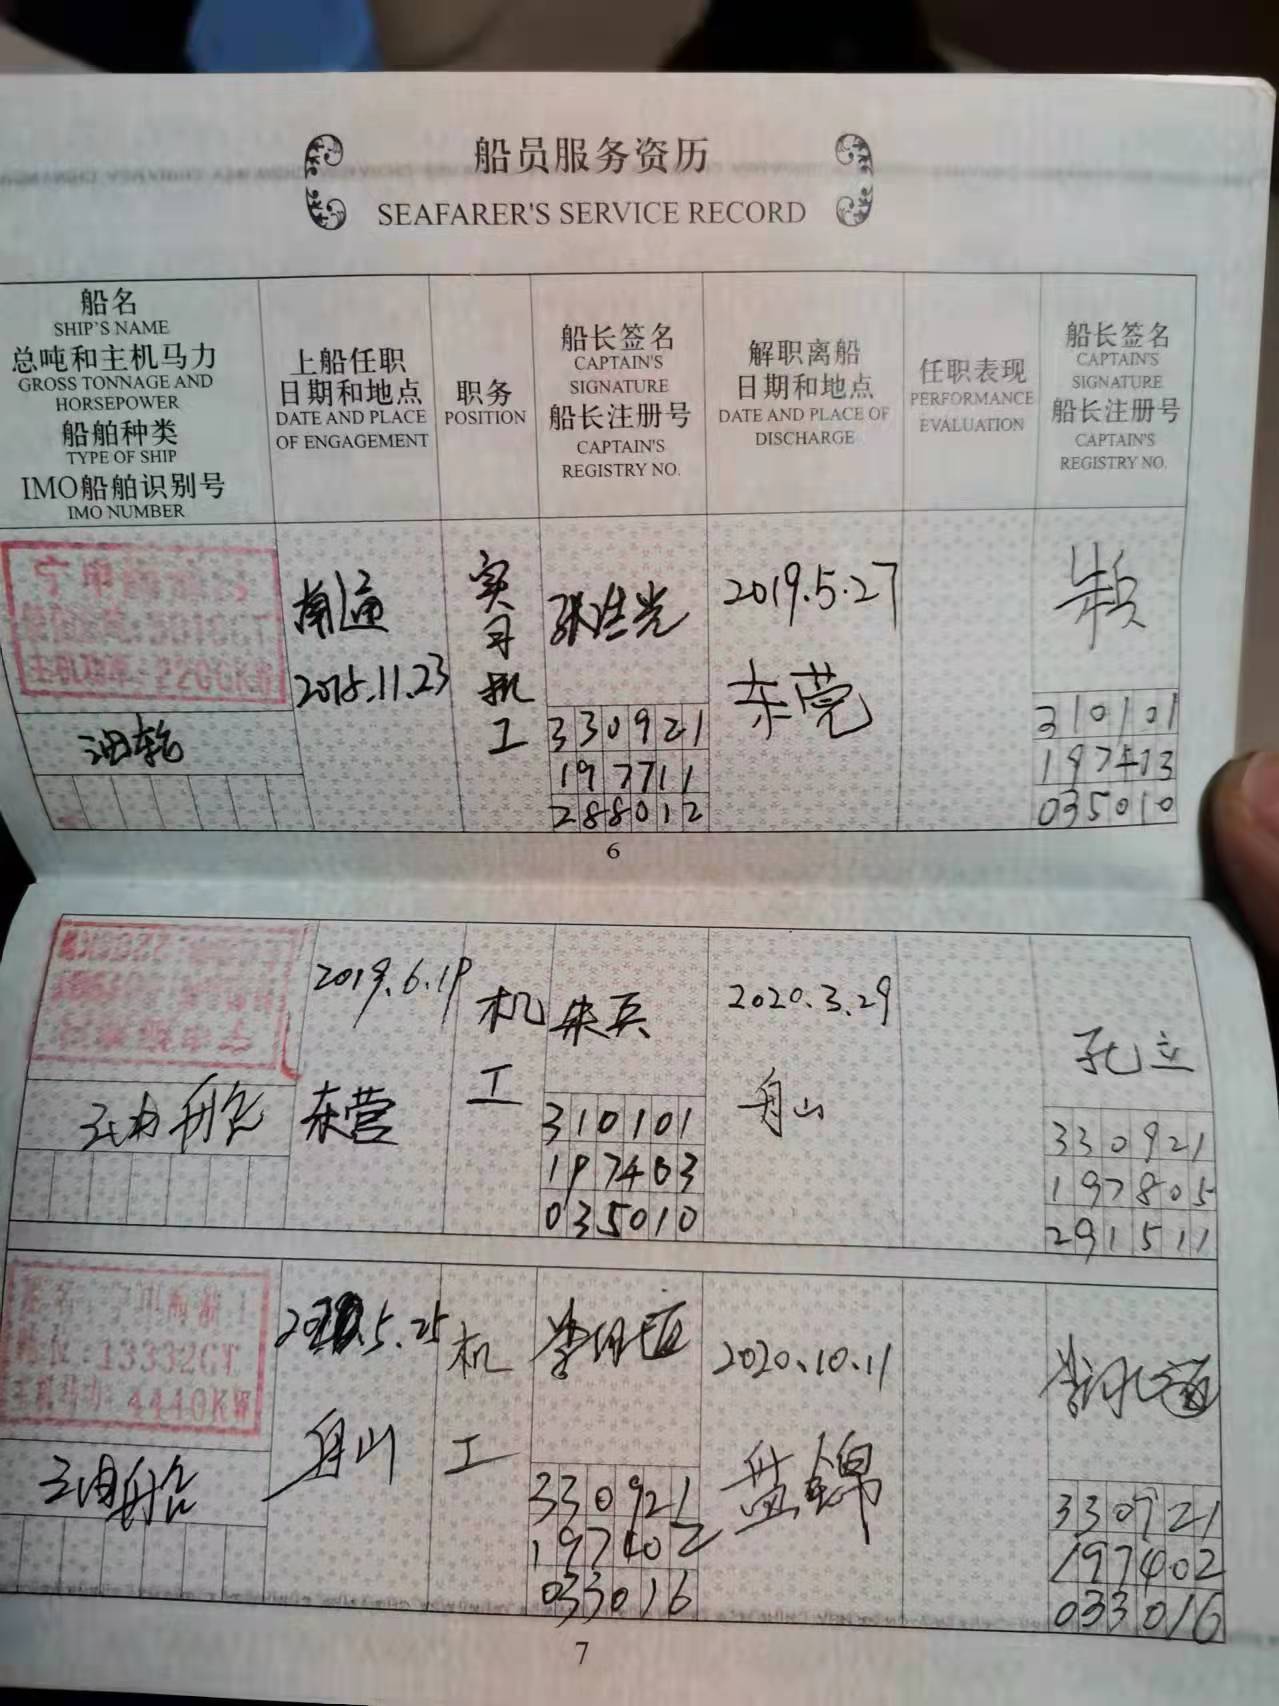 船员服务资历
SEAFARER'S SERVICE RECORD
船名
SHIP'S NAME
总吨和主机马力
GROSS TONNAGE AND
HORSEPOWER
船舶种类
TYPE OF SHIP
IMO船舶识别号
IMO NUMBER
上船任职
日期和地点
DATE AND PLACE
OF ENGAGEMENT
职务
POSITION
船长签名
CAPTAIN'S
SIGNATURE
船长注册号
CAPTAIN'S
REGISTRY NO.
解职离船
日期和地点
DATE AND PLACE OF
DISCHARGE
任职表现
PERFORMANCE
EVALUATION
船长签名
CAPTAIN'S
SIGNATURE
船长注册号
CAPTAIN'S
REGISTRY NO.
主机功率:2200KW
油轮
南通
11.23
实
习
机
工
330921
197711
288012
2019.5.27
东莞
310101
035010
6
油船
2019.6.19
东营
机
工
朱兵
310101
197403
035010
2020.3.29
舟山
孔立
330921
197805
291511
:13332GT
4440KW
油船
5.25
舟山
机
工
330921
197402
033016
2020.10.11
盘锦
197402
033016
7